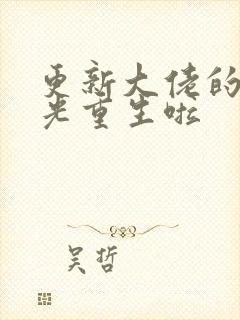 更新大佬的
光重生啦
吴哲